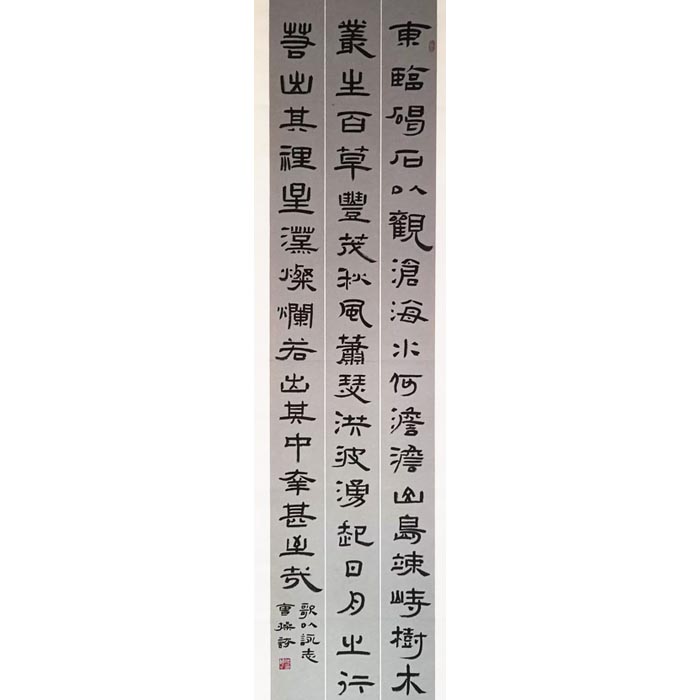 東臨碣石以觀滄海水何澹澹山島竦峙樹木
叢生百草豐茂秋風蕭瑟洪波湧起日月之行
若出其裡星漢燦爛若出其中幸甚至哉
歌以詠志
曹操詩